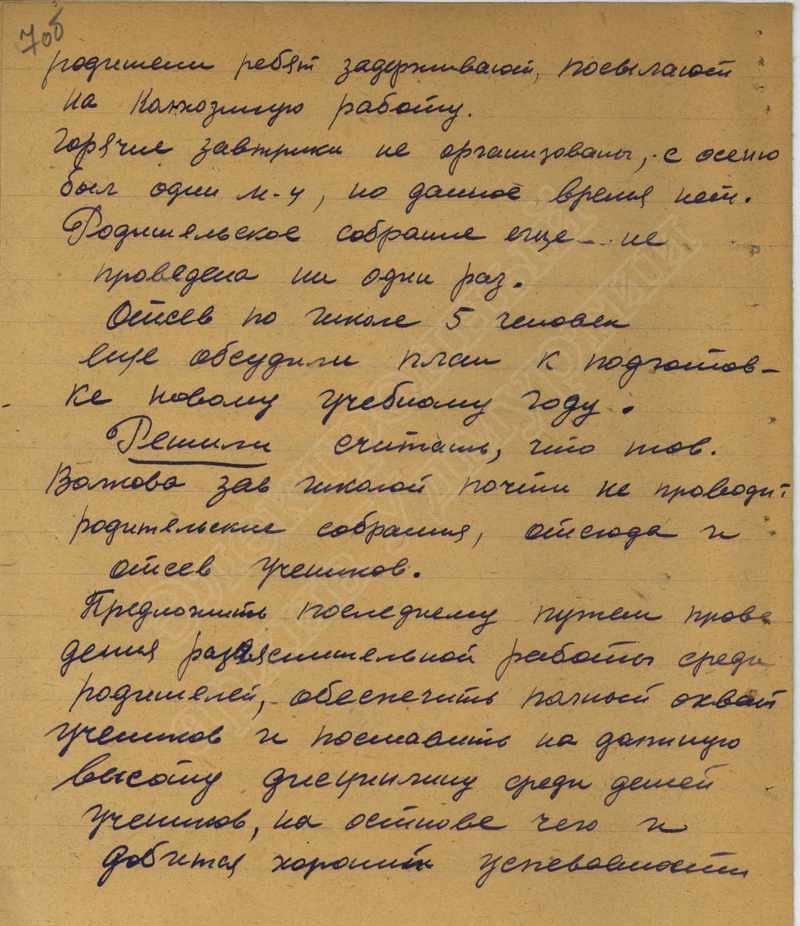 70б
родители ребят задерживают, посылают
на колхозную работу.
Горячие завтраки не организованы, с осени
был один м-ц, но данное время нет.
Родительское собрание еще не
проведена ни один раз.
Отсев по школе 5 человек
еще обсудили план к подготов-
ке новому учебному году.
Решили считать, что тов.
зав школой почти не проводит
родительские собрания, отсюда и
отсев учеников.
Предложить последнему путем прове
дения разъяснительной работы среди
родителей, обеспечить полный охват
учеников и поставить на должную
высоту дисциплину среди детей
учеников, на основе чего и
добится хороший успеваемости